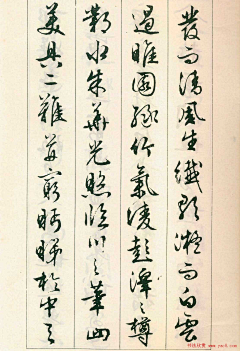 發而清風生纖歌凝而白雲
遏睢園綠竹氣凌彭澤之樽
鄴水朱華光照臨川之筆四
美具二難並窮眄睇於中天